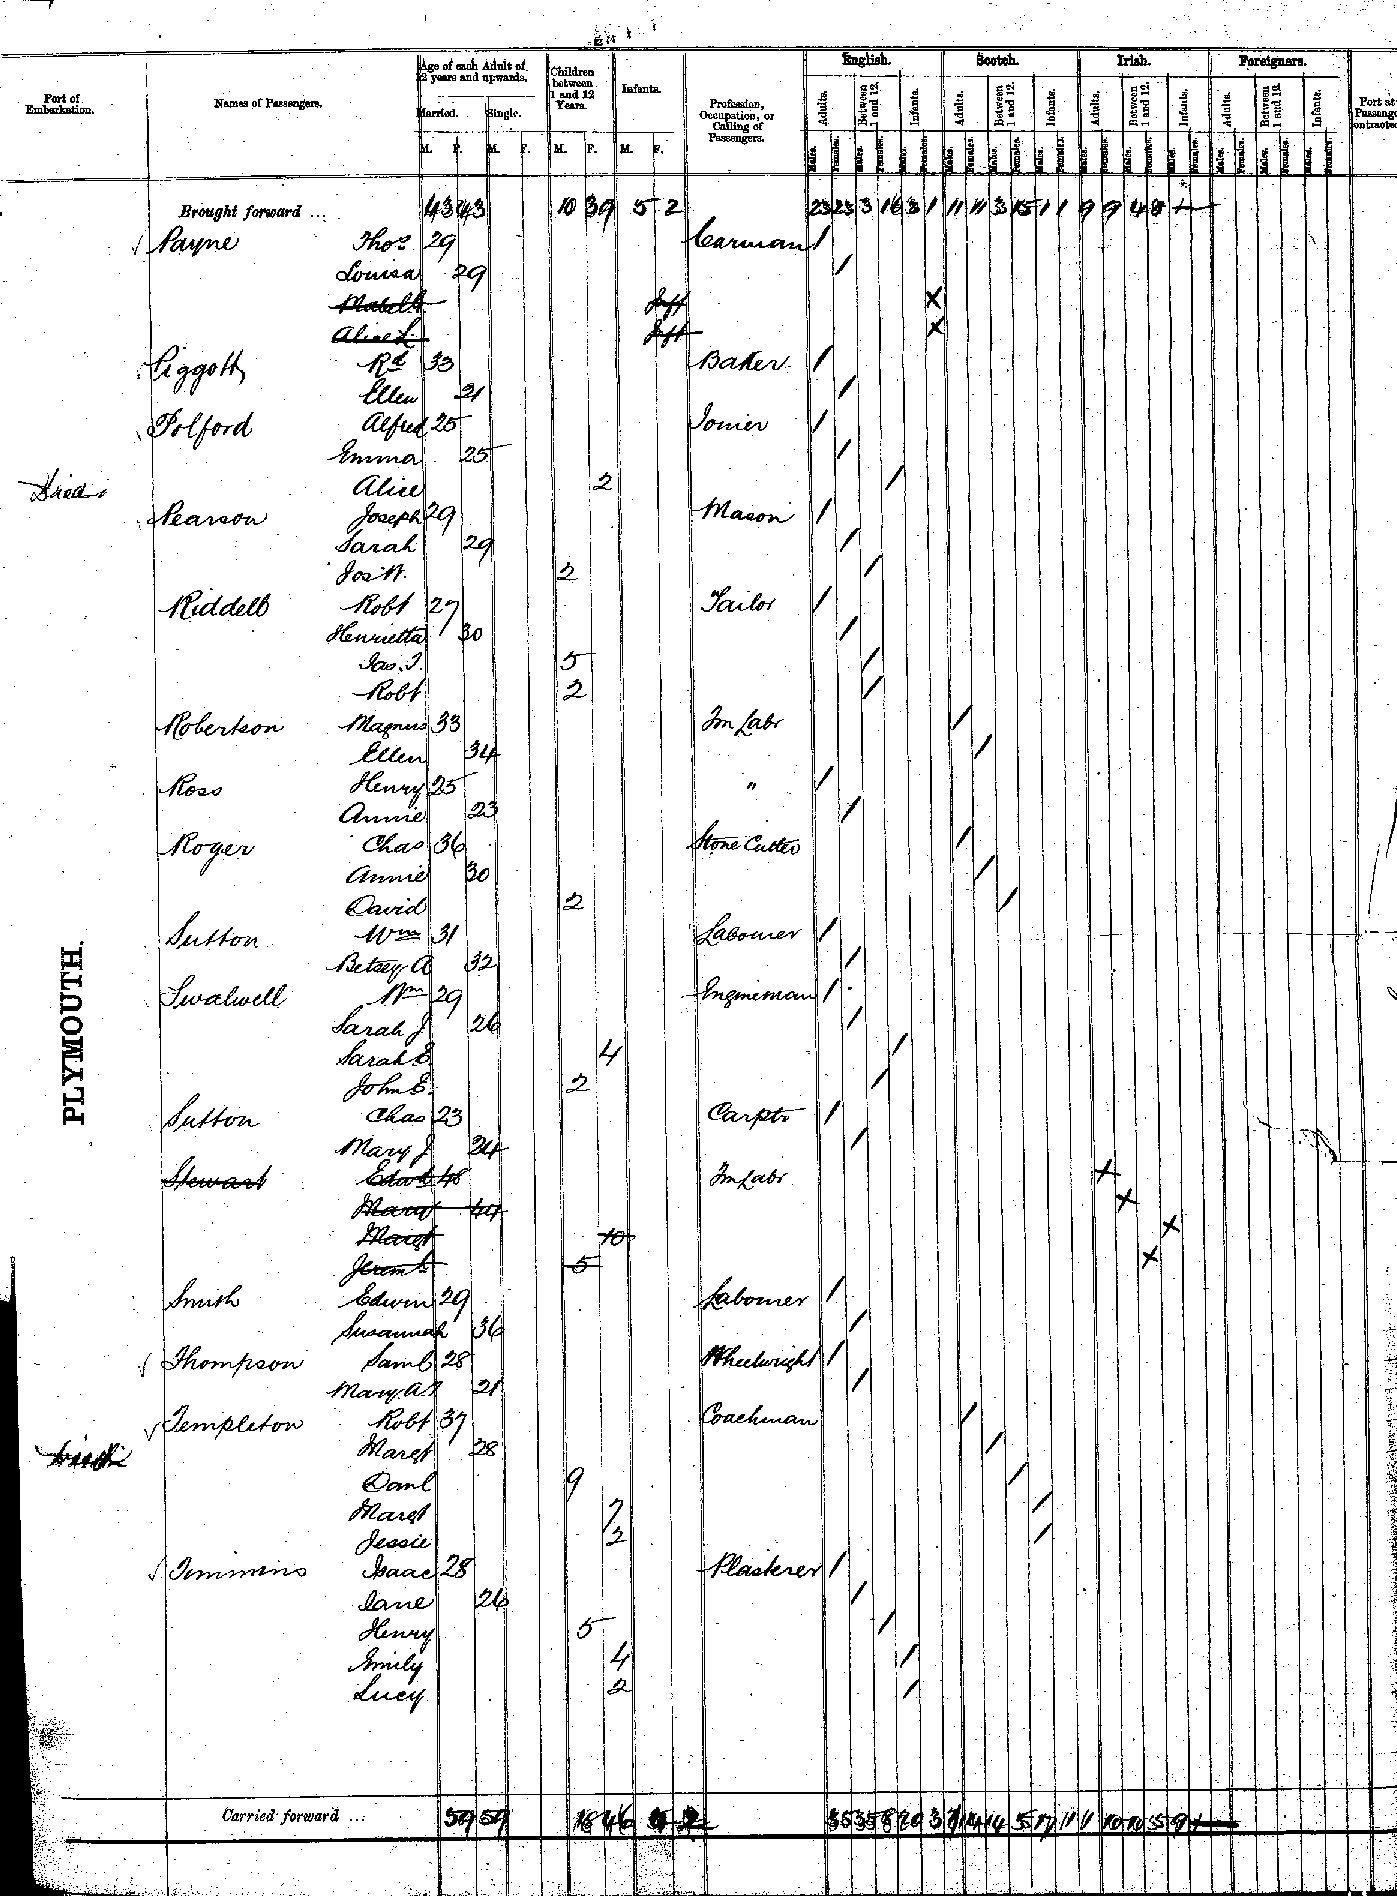 Port of Embarkation. Names of Passengers. Age of each Adult of 12 years and upwards. Children between 1 and 12 Years. Infants. Profession, Occupation, or Calling of Passengers. English. Scotch. Irish. Foreigners. Port at
Married. Single. Adults. Between 1 and 12. Infants. Adults. Between 1 and 12. Infants. Adults. Between 1 and 12. Infants. Adults. Between 1 and 12. Infants.
M. F. M. F. M. F. M. F. Males. Females. Males. Females. Males. Females. Males. Females. Males. Females. Males. Females. Males. Females. Males. Females. Males. Females. Males. Females. Males. Females. Males. Females.
Brought forward ... 43 43 10 39 5 2 23 23 3 16 3 1 11 11 3 15 1 1 9 9 4 8
Payne Thos 29 Carman /
Louisa 29 /
Mabell Inft x
Alice L. Inft x
Piggott Rd 33 Baker /
Ellen 21 /
Polford Alfred 25 Joiner /
Emma 25 /
Died Alice 2 /
Pearson Joseph 29 Mason /
Sarah 29 /
Jos W. 2 /
Riddell Robt 27 Tailor /
Henrietta 30 /
Jas. T. 5 /
Robt 2 /
Robertson Magnus 33 Fm Labr /
Ellen 34 /
Ross Henry 25 " /
Annie 23 /
Roger Chas 36 Stone Cutter /
Annie 30 /
David 2 /
Sutton Wm 31 Labourer /
Betsey A 32 /
Swalwell Wm 29 Engineman /
Sarah J 26 /
Sarah E 4 /
John E. 2 /
Sutton Chas 23 Carptr /
Mary J 24 /
Stewart Edwd 48 Fm Labr x
Margt 44 x
Margt 10 x
Jeremh 5 x
Smith Edwin 29 Labourer /
Susannah 36 /
Thompson Saml 28 Wheelwright /
Mary A 21 /
Templeton Robt 37 Coachman /
Margt 28 /
Danl 9 /
Margt 7 /
Jessie 2 /
Timmins Isaac 28 Plasterer /
Jane 26 /
Henry 5 /
Emily 4 /
Lucy 2 /
Carried forward ... 59 59 18 46 35 35 8 20 3
PLYMOUTH.